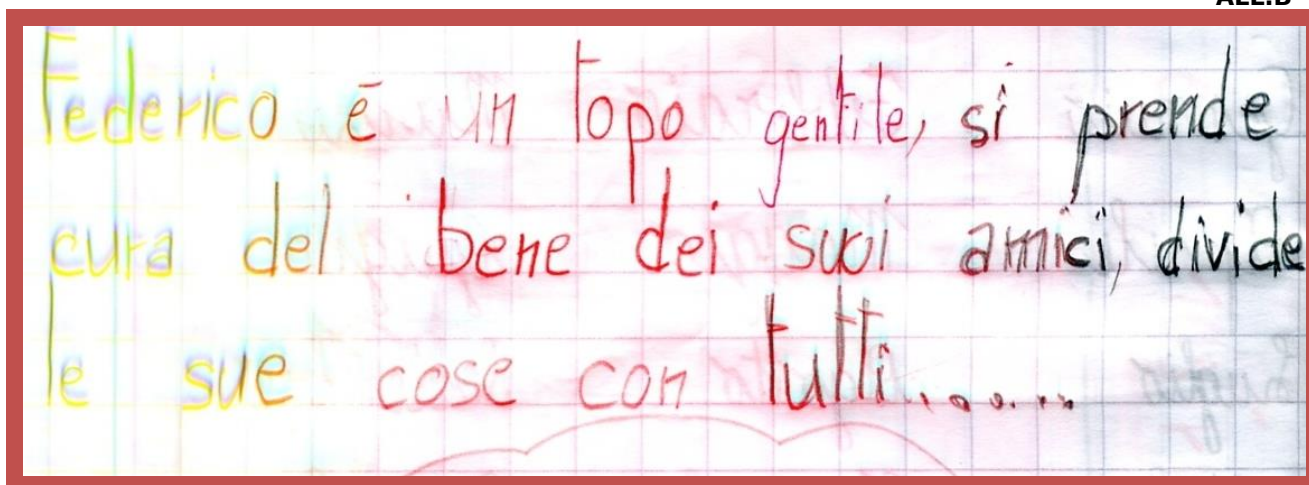 ALL.B
Federico é un topo gentile, si prende
cura del bene dei suoi amici, divide
le sue cose con tutti.......